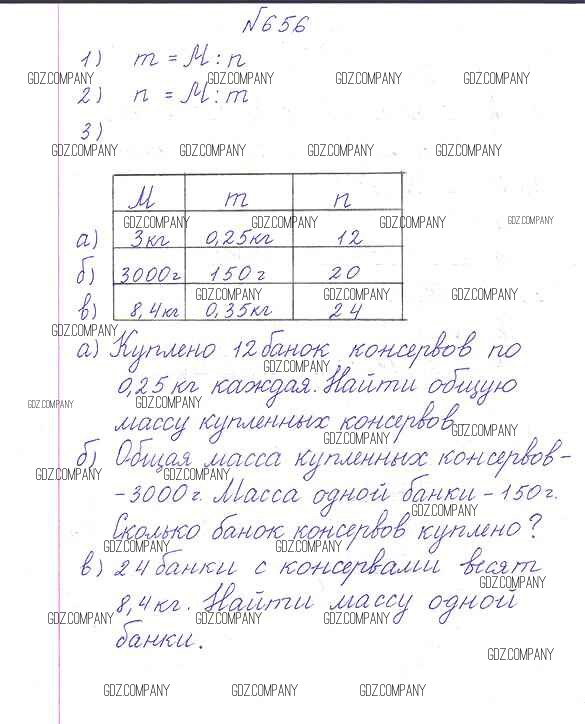 №656
1) m = M : n
GDZ.COMPANY GDZ.COMPANY GDZ.COMPANY GDZ.COMPANY
2) n = M : m
3)
GDZ.COMPANY GDZ.COMPANY GDZ.COMPANY GDZ.COMPANY
M m n
GDZ.COMPANY GDZ.COMPANY GDZ.COMPANY GDZ.COMPANY
а) 3кг 0,25кг 12
б) 3000г 150г 20
GDZ.COMPANY GDZ.COMPANY GDZ.COMPANY
в) 8,4кг 0,35кг 24
GDZ.COMPANY
а) Куплено 12 банок консервов по
GDZ.COMPANY
0,25 кг каждая. Найти общую
GDZ.COMPANY GDZ.COMPANY
массу купленных консервов.
GDZ.COMPANY GDZ.COMPANY
б) Общая масса купленных консервов-
GDZ.COMPANY GDZ.COMPANY
-3000г. Масса одной банки - 150г.
GDZ.COMPANY
Сколько банок консервов куплено?
GDZ.COMPANY GDZ.COMPANY
в) 24 банки с консервами весят
GDZ.COMPANY
8,4кг. Найти массу одной
GDZ.COMPANY GDZ.COMPANY GDZ.COMPANY
банки.
GDZ.COMPANY
GDZ.COMPANY GDZ.COMPANY GDZ.COMPANY